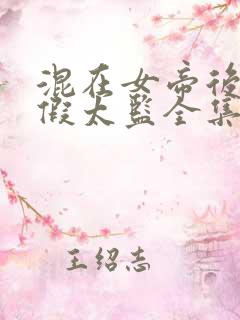 混在女帝後
假太監全集
王紹志